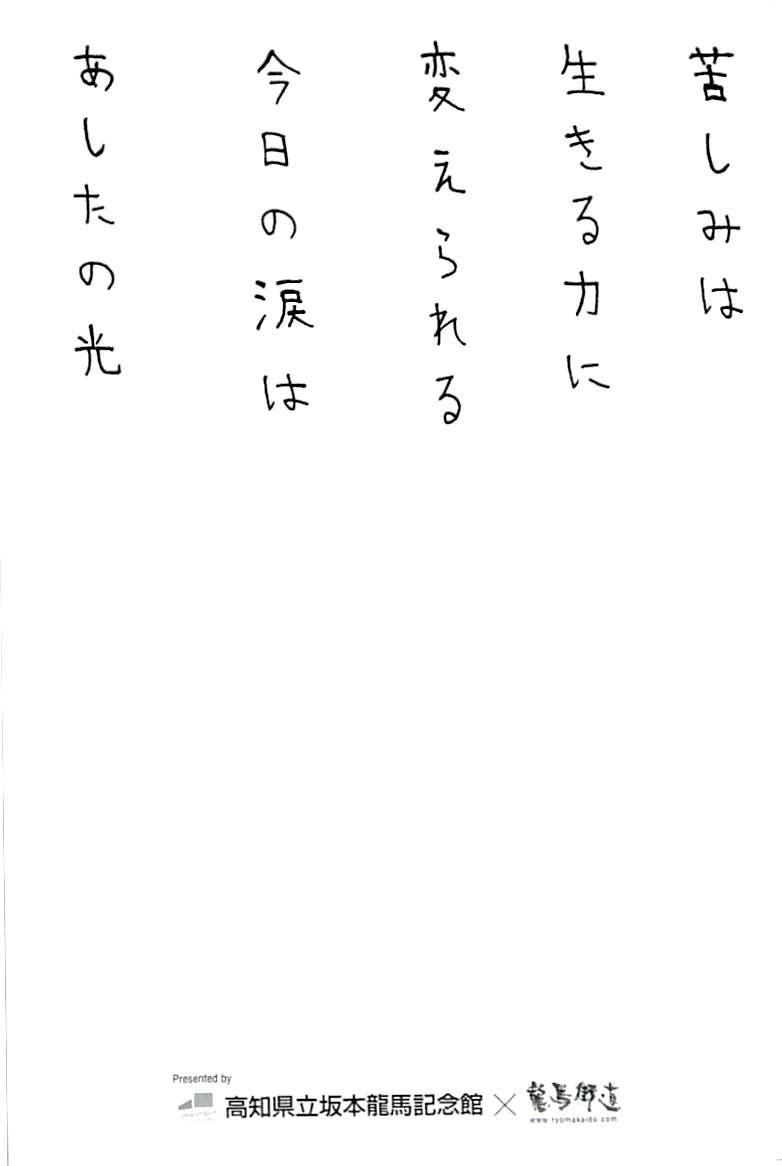 苦しみは
生きる力に
変えられる
今日の涙は
あしたの光
Presented by
高知県立坂本龍馬記念館×龍馬街道
www.ryomakaido.com